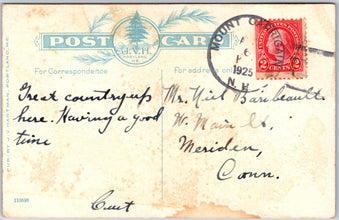 POST CARD
J.V.H.
PORTLAND
ME.
For Correspondence
For address only
PUB. BY J. V. HARTMAN, PORTLAND, ME.
MOUNT
6
1925
N.H.
2 CENTS 2
Great country up
here. Having a good
time
Curt
Mr. Baribeault
W. Main St.
Meriden,
Conn.